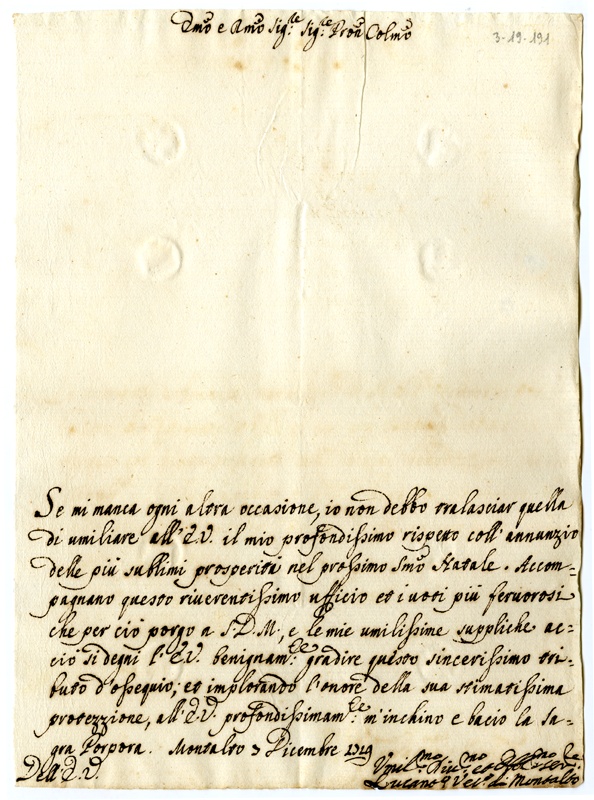 Emo e Rmo Sig.re Sig.re Pron Colmo
3-19-191
Se mi manca ogni altra occasione, io non debbo tralasciar quella
di umiliare all'E.V. il mio profondissimo rispetto coll'annunzio
delle più sublimi prosperità nel prossimo Smo Natale. Accom=
pagnano questo riverentissimo ufficio et i voti più fervorosi
che per ciò porgo a S.D.M., e le mie umilissime suppliche ac=
ciò si degni l'E.V. benignam.te gradire questo sincerissimo tri=
buto d'ossequio; et implorando l'onore della sua stimatissima
protezzione, all'E.V. profondissimam.te m'inchino e bacio la Sa=
gra Porpora. Montalto 3 Dicembre 1719
Dell'E.V.
Umil.mo Div.mo et Obb.mo Ser.re
Lucano Ves.o di Montalto